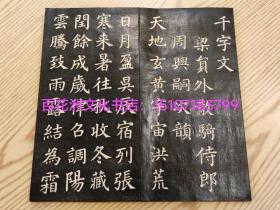 千字文
梁員外散騎侍郎
周興嗣次韻
天地玄黃宇宙洪荒
日月盈昃辰宿列張
寒来暑往秋收冬藏
閏餘成歲律召調陽
雲騰致雨露結為霜